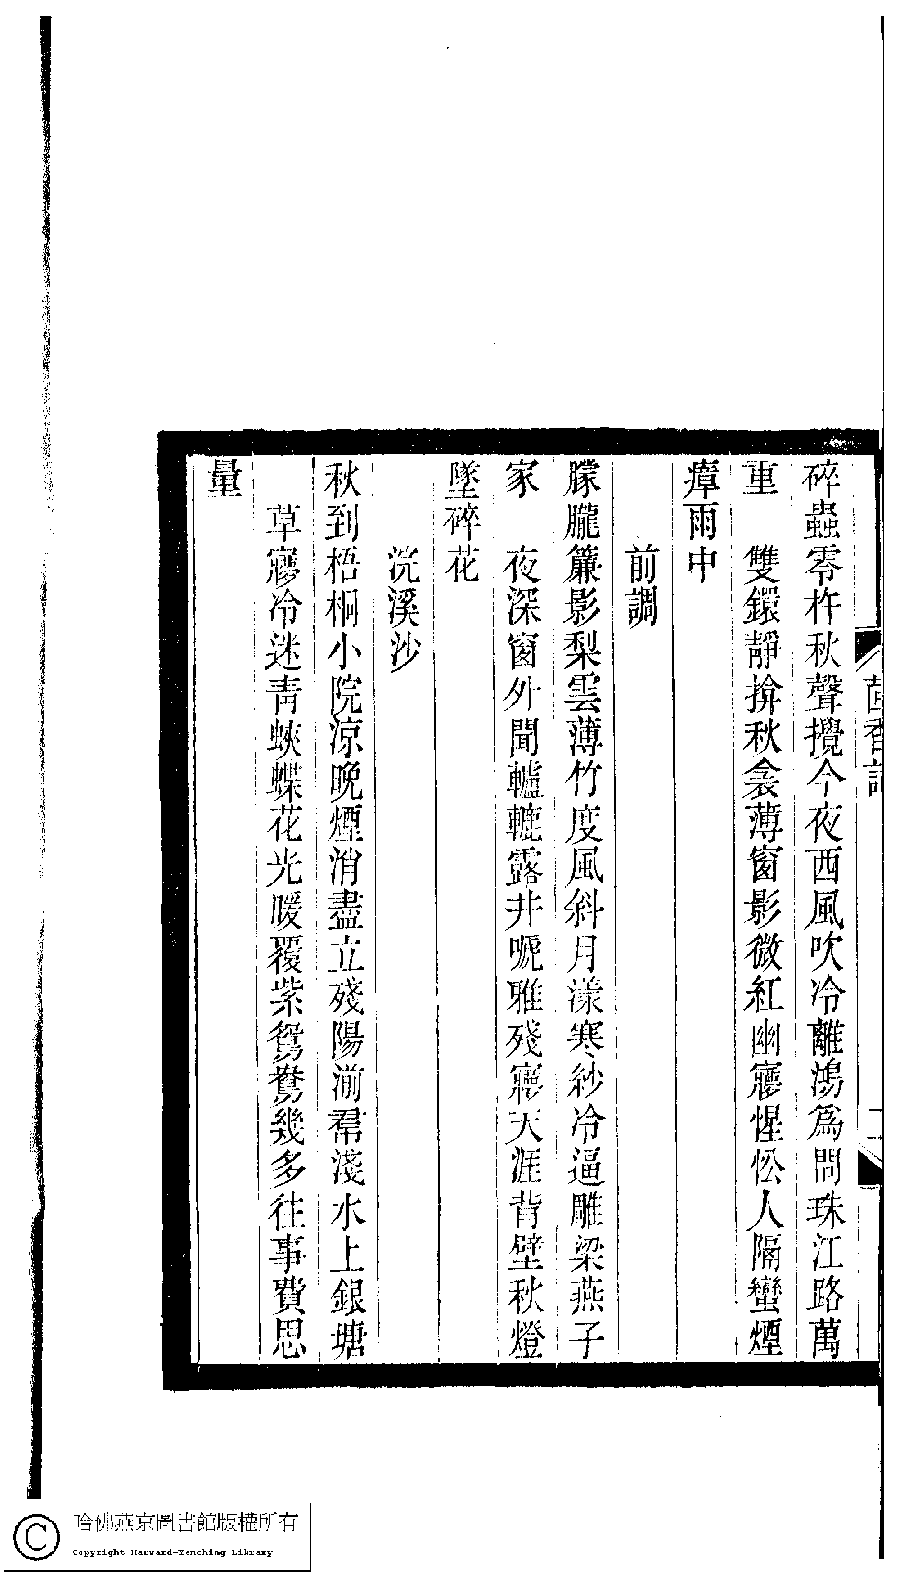 碎蟲零杵秋聲攪今夜西風吹冷離鴻爲問珠江路萬
重　雙鐶靜揜秋衾薄窗影微紅幽寢惺忪人隔蠻煙
瘴雨中
前調
朦朧簾影梨雲薄竹度風斜月漾寒紗冷逼雕梁燕子
家　夜深窗外聞轤轆露井呢雅殘寢天涯背壁秋燈
墜碎花
浣溪沙
秋到梧桐小院涼晚煙消盡立殘陽湔帬淺水上銀塘
草寢冷迷青蛺蝶花光暖覆紫鴛鴦幾多往事費思
量
香
哈佛燕京圖書館版權所有
Copyright Harvard-Yenching Library